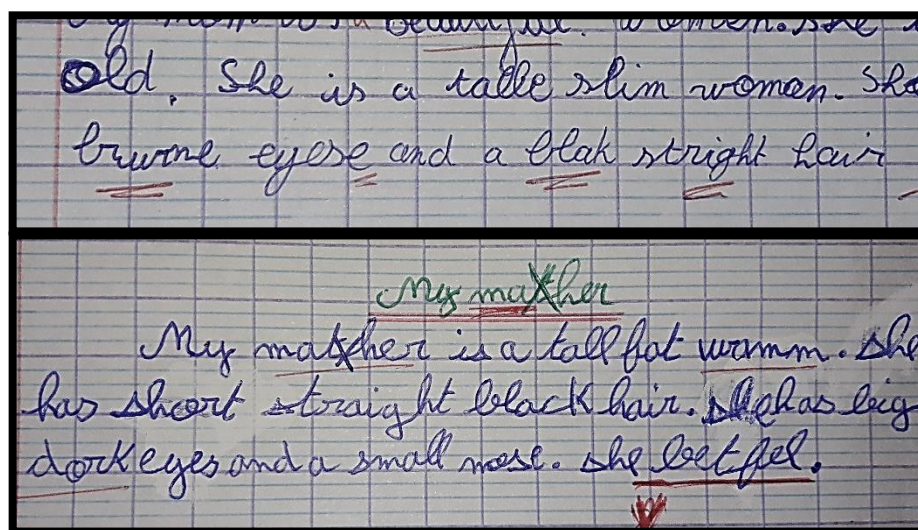 My mom is a beautiful. women. she
old. She is a talle slim woman. She
brwone eyese and a blak stright hair
My mather
My mather is a tall fat wamm. she
has short straight black hair. she has big
dork eyes and a small nose. she betfel.